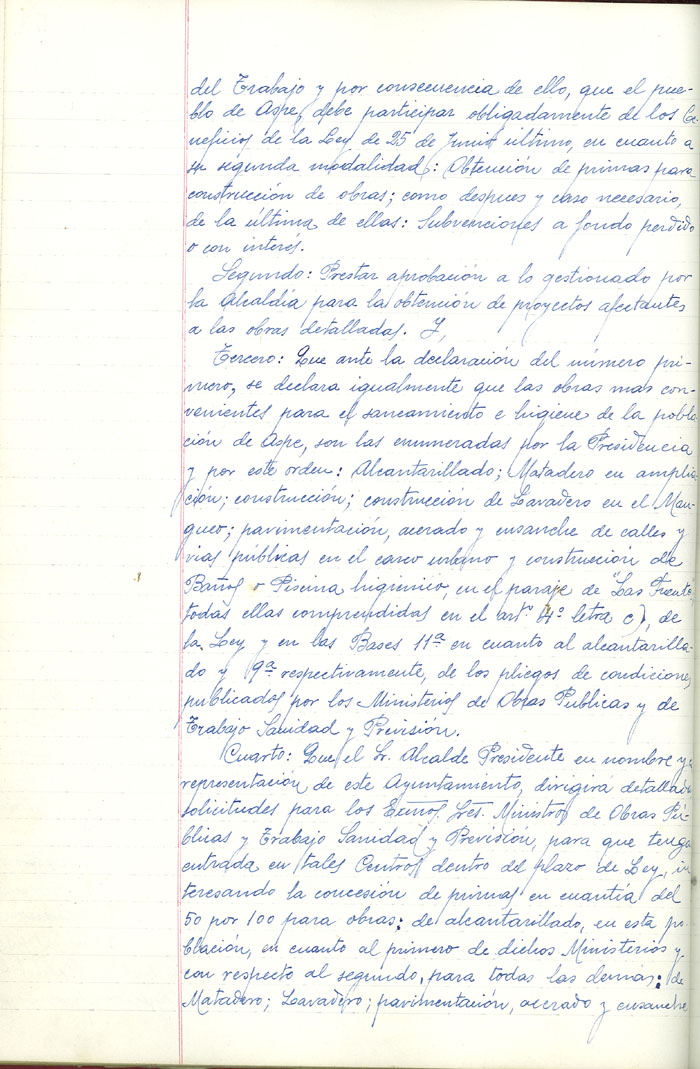 del Trabajo y por consecuencia de ello, que el pue-
blo de Aspe, debe participar obligadamente de los be
neficios de la Ley de 25 de Junio último, en cuanto a
su segunda modalidad: Obtención de primas para
construcción de obras; como despues y caso necesario,
de la última de ellas: Subvenciones a fondo perdido
o con interés.
Segundo: Prestar aprobación a lo gestionado por
la Alcaldía para la obtención de proyectos afectantes
a las obras detalladas. Y,
Tercero: Que ante la declaración del número pri-
mero, se declara igualmente que las obras mas con-
venientes para el saneamiento e higiene de la pobla-
ción de Aspe, son las enumeradas por la Presidencia
y por este orden: Alcantarillado; Matadero en amplia
ción; construcción; construcción de Lavadero en el Man-
guco; pavimentación, acerado y ensanche de calles y
vias públicas en el casco urbano y construcción de
Baños o Piscina higienico, en el paraje de "Las Fuentes
todas ellas comprendidas en el artº 4º letra c), de
la Ley y en las Bases 11ª en cuanto al alcantarilla-
do y 9ª respectivamente, de los pliegos de condiciones
publicados por los Ministerios de Obras Publicas y de
Trabajo Sanidad y Previsión.
Cuarto: Que el Sr. Alcalde Presidente en nombre y
representación de este Ayuntamiento, dirigirá detallada
solicitudes para los Excmos. Sres. Ministros de Obras Pú-
blicas y Trabajo Sanidad y Previsión, para que tenga
entrada en tales Centros dentro del plazo de Ley, in
teresando la concesión de primas en cuantía del
50 por 100 para obras: de alcantarillado, en esta po
blación, en cuanto al primero de dichos Ministerios y
con respecto al segundo, para todas las demas: de
Matadero; Lavadero; pavimentación, acerado y ensanche